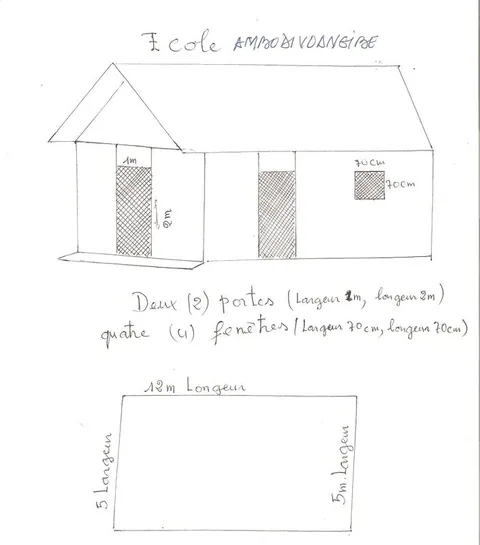 Ecole AMBODIVOANGIBE
1m
2m
70cm
70cm
Deux (2) portes (Largeur 1m, longeur 2m)
quatre (4) fenêtres (Largeur 70cm, longeur 70cm)
12m Longeur
5 Largeur
5m Largeur